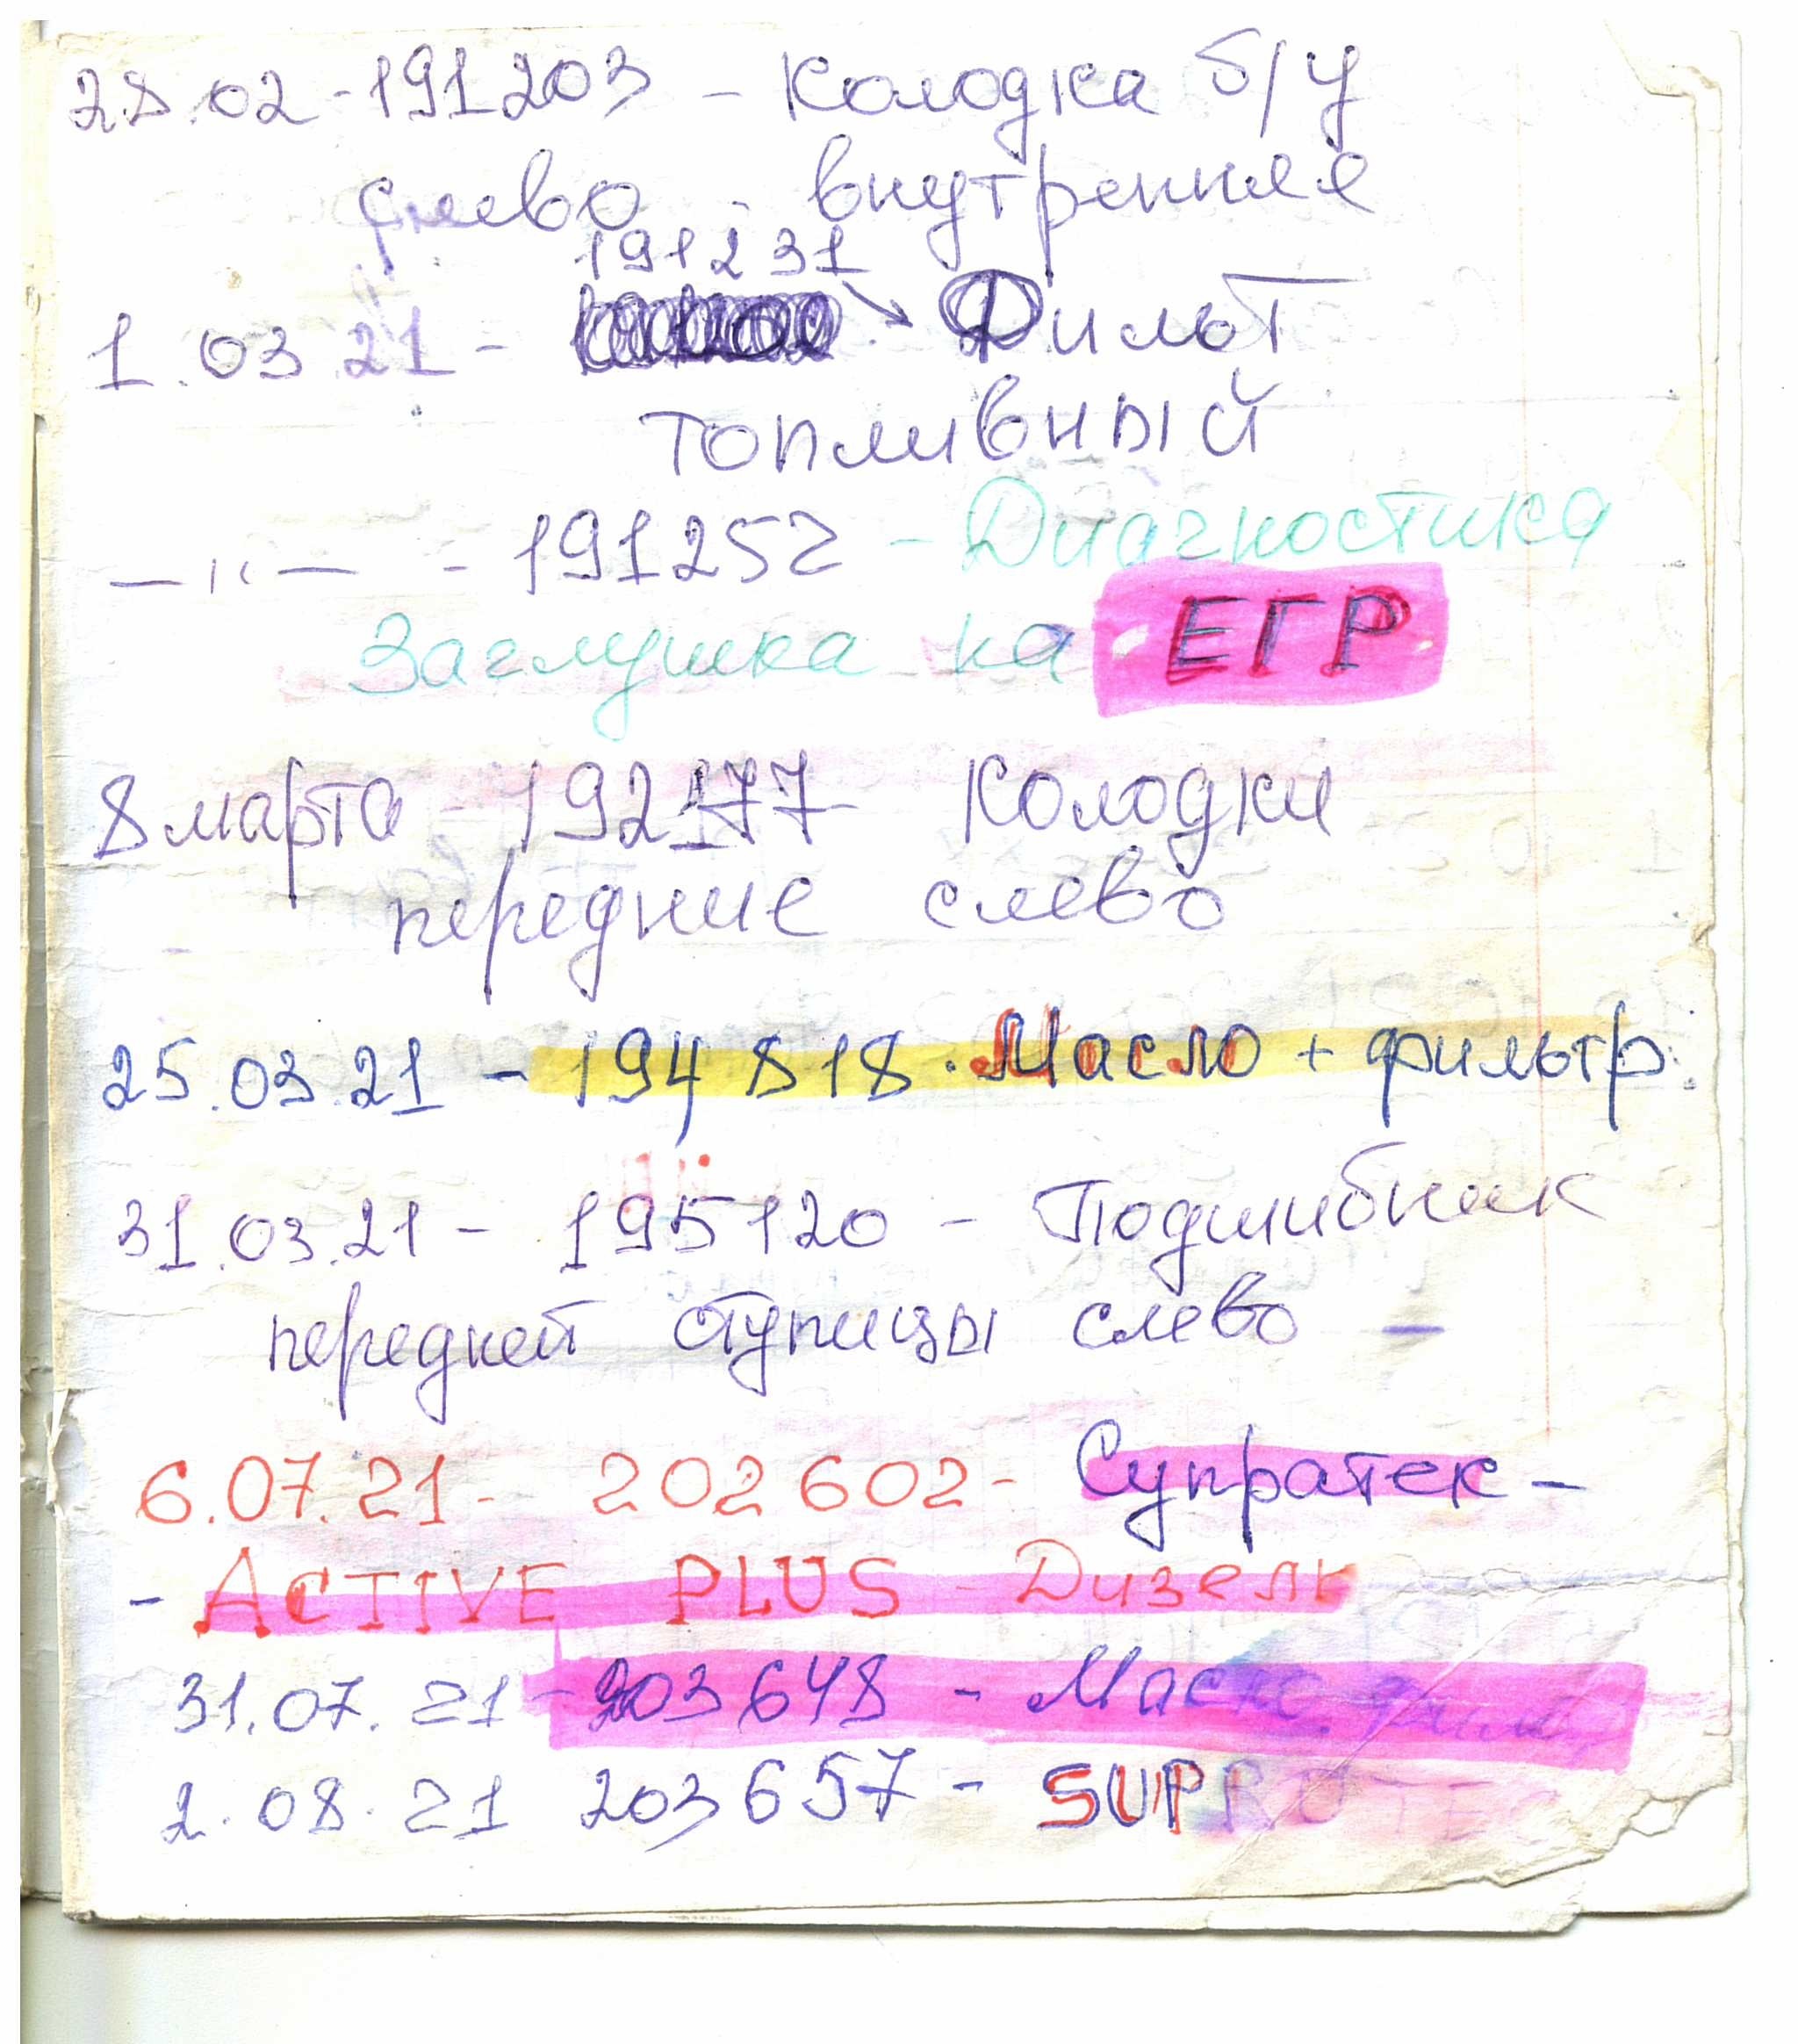 28.02 - 191203 - Колодка б/у
слево - внутренняя
191231
1.03.21 - Фильт
топливный
—"— - 191252 - Диагностика
Заглушка на ЕГР
8 марта - 192177 Колодки
передние слево
25.03.21 - 194818. Масло + фильтр.
31.03.21 - 195120 - Подшибник
передней ступицы слево -
6.07.21 - 202602 - Супратек -
- ACTIVE PLUS - Дизель
31.07.21 - 203648 - Масло.
2.08.21 203657 - SUPROTEC